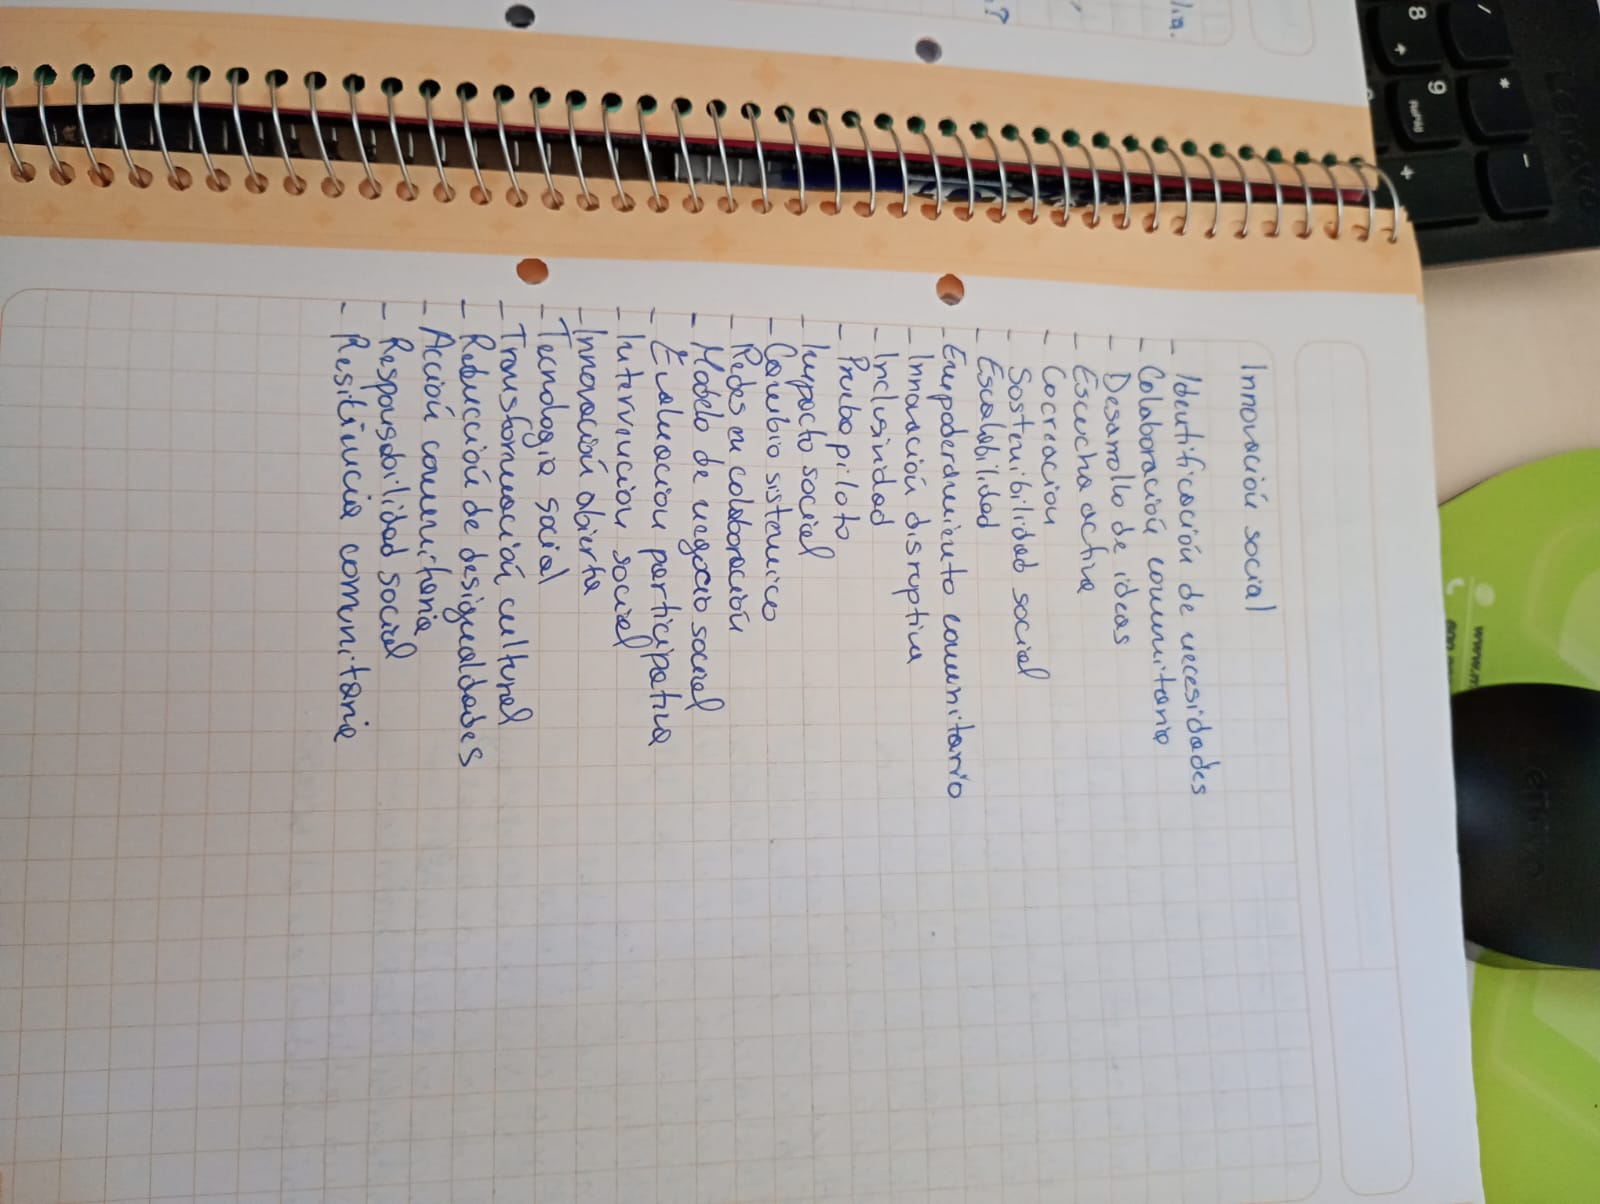 lia.
?
Innovación social
- Identificación de necesidades
- Colaboración comunitaria
- Desarrollo de ideas
- Escucha activa
- Cocreacion
- Sostenibilidad social
- Escalabilidad
- Empoderamiento comunitario
- Innovación disruptiva
- Inclusividad
- Prueba piloto
- Impacto social
- Cambio sistemico
- Redes en colaboración
- Modelo de negocio social
- Evaluacion participativa
- Intervencion social
- Innovación abierta
- Tecnologia social
- Transformación cultural
- Reducción de desigualdades
- Acción comunitaria
- Responsabilidad social
- Resiliencia comunitaria
/
*
-
8
9
RePág
+
www.m